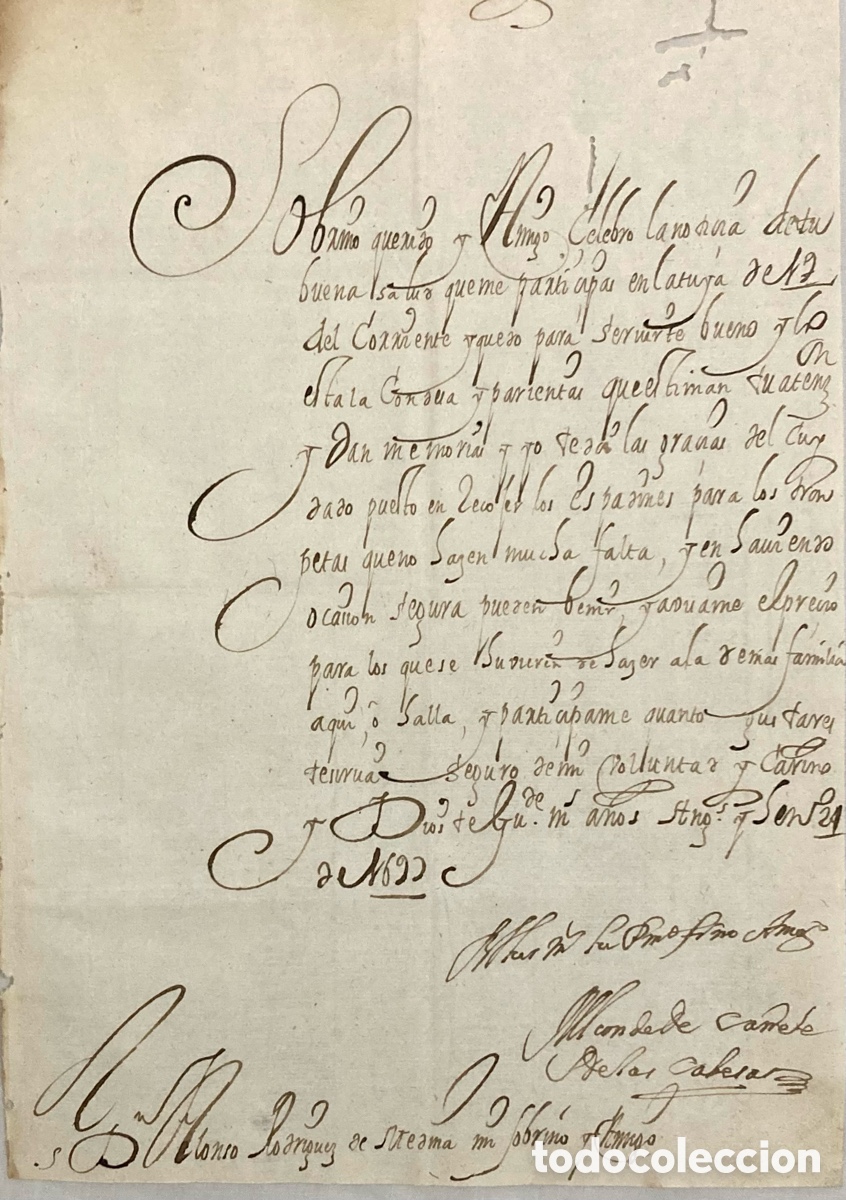 Sobrino querido y Amigo Celebro la noticia de tu
buena salud que me participas en la tuya de 17
del Corriente y quedo para servirte bueno y lo
esta la Condesa y parientas que estiman tu atenz.on
y dan memorias y yo te doi las gracias del Cuy
dado puesto en Recojer los Espadines para los tron
petas que no hazen mucha falta, y en haviendo
ocasion segura pueden benir, y avisame el precio
para los que se huvieren de hazer a la demas familia
aqui, ô halla, y participame quanto gustares
te sirva seguro de mi Volluntad y Cariño
y Dios te Gu.de m.s años Stiag.o y Hen.o 21
de 1699
tu
fino Amigo
El conde de Cañete
de las Cabesas
S.r D.n Alonso Rodriguez de mi sobrino y Amigo
todocoleccion